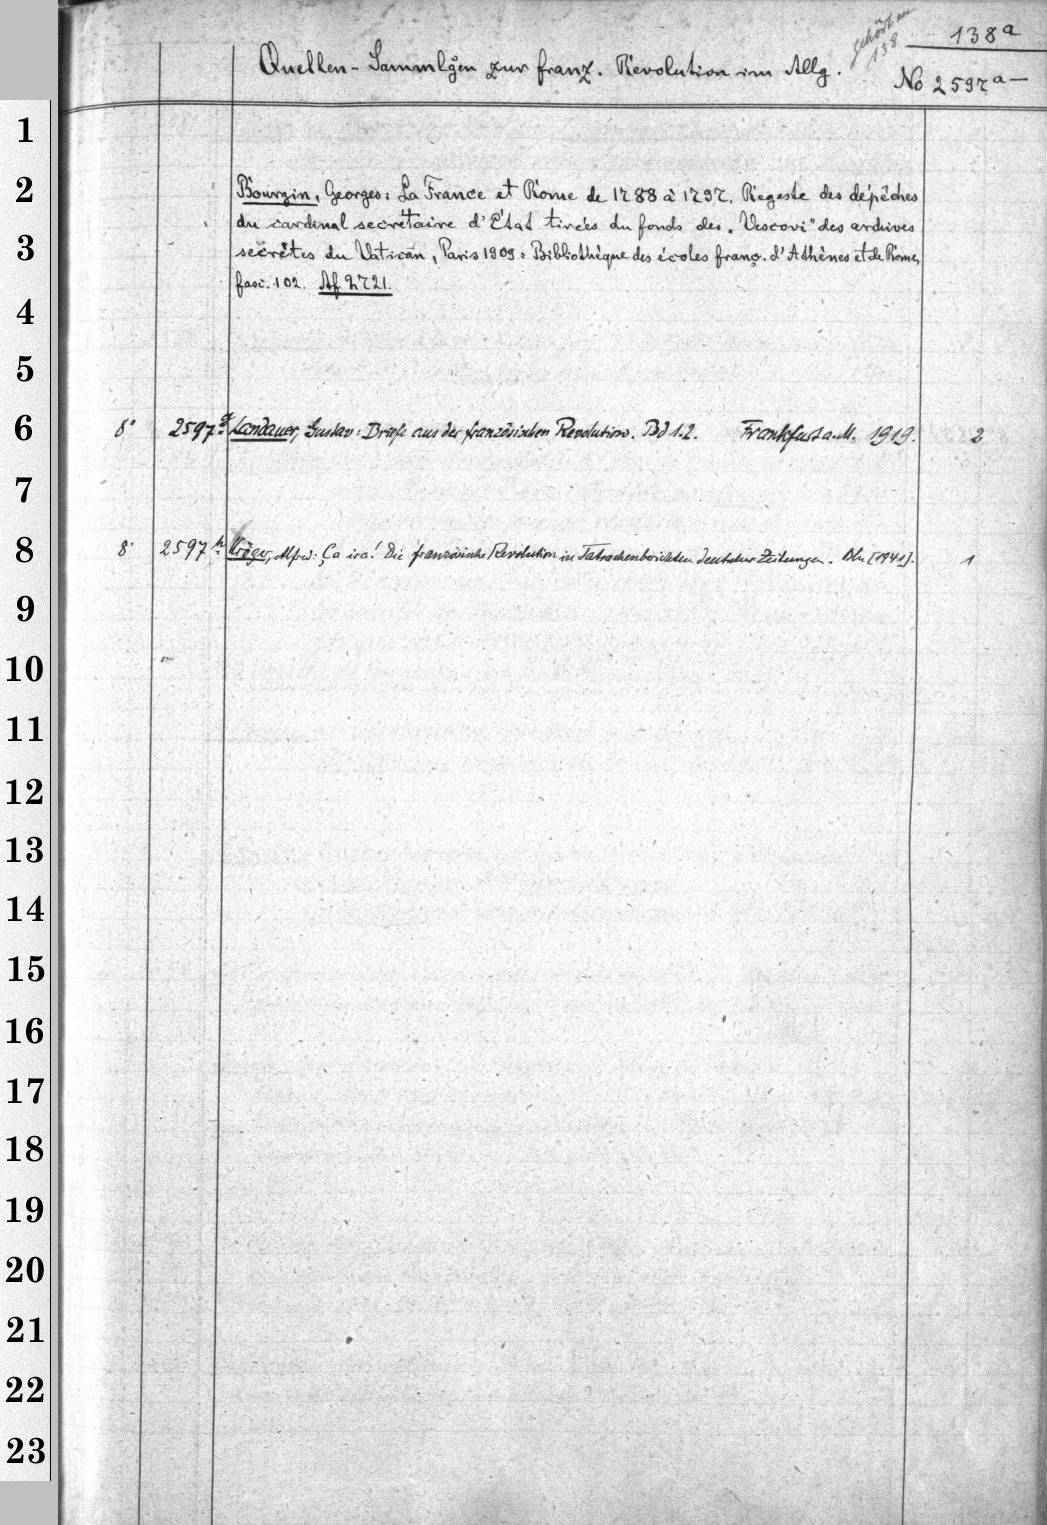 gehört zu 138
138a
Quellen-Sammlgen zur franz. Revolution im Allg.
No 2597a—
1
2
Bourgin, Georges: La France et Rome de 1788 à 1797. Regeste des dépêches
du cardinal secrétaire d'État tirées du fonds des „Vescovi" des archives
3
secrètes du Vatican, Paris 1909 = Bibliothèque des écoles franç. d'Athènes et de Rome,
fasc. 102. Af 2721.
4
5
6
8° 2597g Landauer, Gustav: Briefe aus der französischen Revolution. Bd 1.2. Frankfurt a.M. 1919. 2
7
8
8° 2597h Kröger, Alfred: Ça ira! Die französische Revolution in Tatsachenberichten deutscher Zeitungen. Bln [1941]. 1
9
10
11
12
13
14
15
16
17
18
19
20
21
22
23